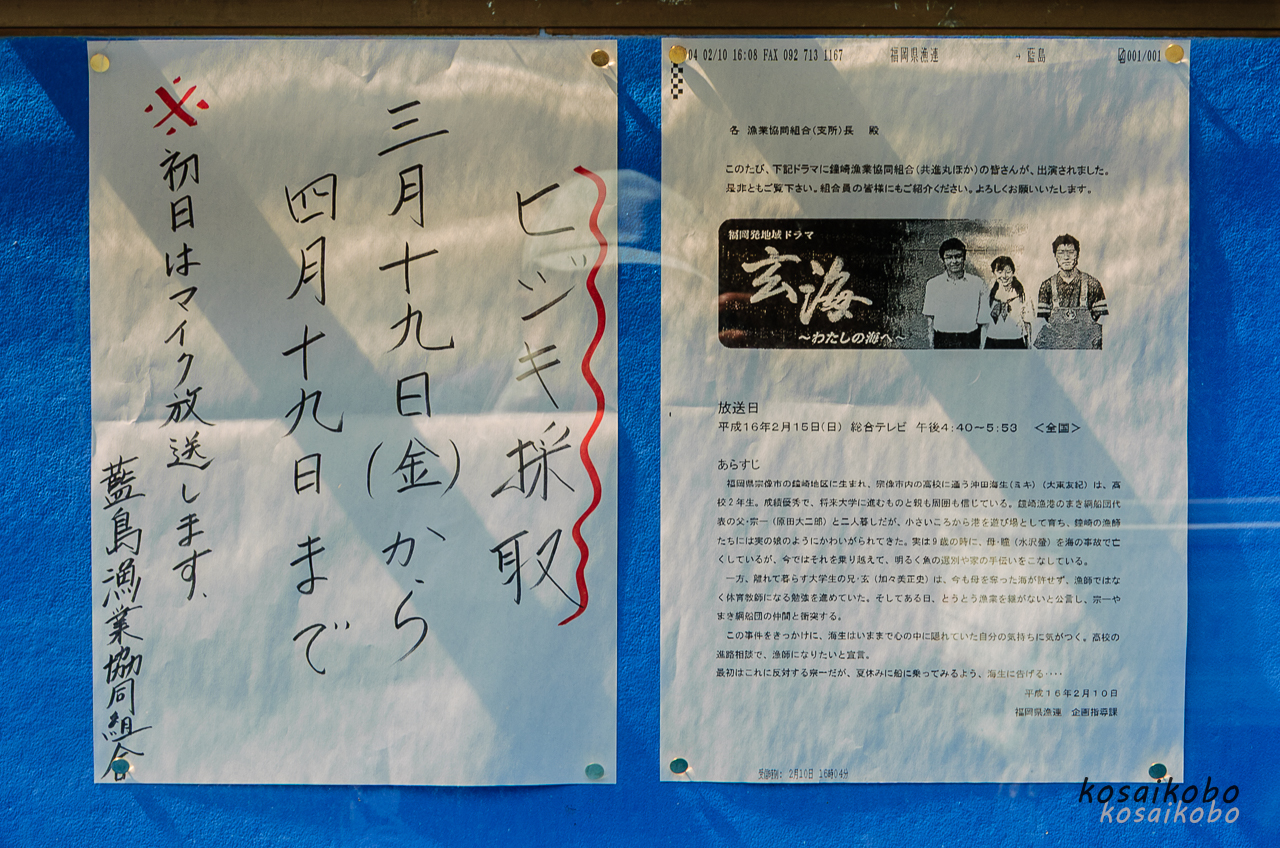 ヒジキ採取
三月十九日(金)から
四月十九日まで
※初日はマイク放送します.
藍島漁業協同組合
04 02/10 16:08 FAX 092 713 1167 福岡県漁連 → 藍島 001/001
各 漁業協同組合(支所)長 殿
このたび、下記ドラマに鐘崎漁業協同組合(共進丸ほか)の皆さんが、出演されました。
是非ともご覧下さい。組合員の皆様にもご紹介ください。よろしくお願いいたします。
福岡発地域ドラマ
玄海
~わたしの海へ~
放送日
平成16年2月15日(日) 総合テレビ 午後4:40~5:53 <全国>
あらすじ
福岡県宗像市の鐘崎地区に生まれ、宗像市内の高校に通う沖田海生(ミキ)(大東友紀)は、高
校2年生。成績優秀で、将来大学に進むものと親も周囲も信じている。鐘崎漁港のまき網船団代
表の父・宗一(原田大二郎)と二人暮しだが、小さいころから港を遊び場として育ち、鐘崎の漁師
たちには実の娘のようにかわいがられてきた。実は9歳の時に、母・瞳(水沢螢)を海の事故で亡
くしているが、今ではそれを乗り越えて、明るく魚の選別や家の手伝いをこなしている。
一方、離れて暮らす大学生の兄・玄(加々美正史)は、今も母を奪った海が許せず、漁師ではな
く体育教師になる勉強を進めていた。そしてある日、とうとう漁業を継がないと公言し、宗一や
まき網船団の仲間と衝突する。
この事件をきっかけに、海生はいままで心の中に隠れていた自分の気持ちに気がつく。高校の
進路相談で、漁師になりたいと宣言。
最初はこれに反対する宗一だが、夏休みに船に乗ってみるよう、海生に告げる‥‥
平成16年2月10日
福岡県漁連 企画指導課
受信時刻: 2月10日 16時04分
kosaikobo
kosaikobo